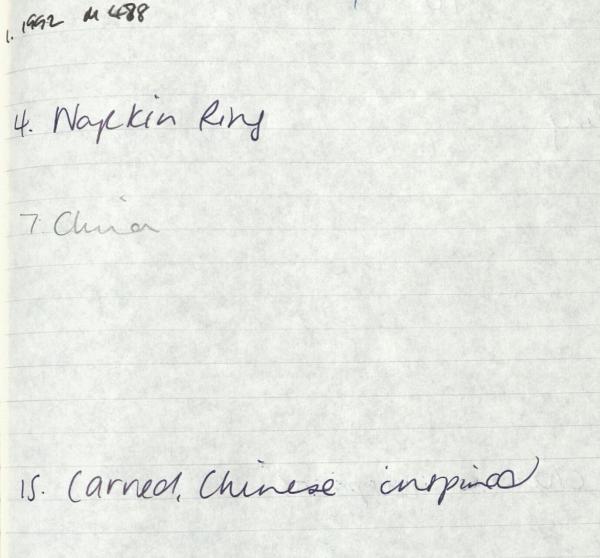 1. 1992 M 488
4. Napkin Ring
7. China
15. Carved, Chinese inspired